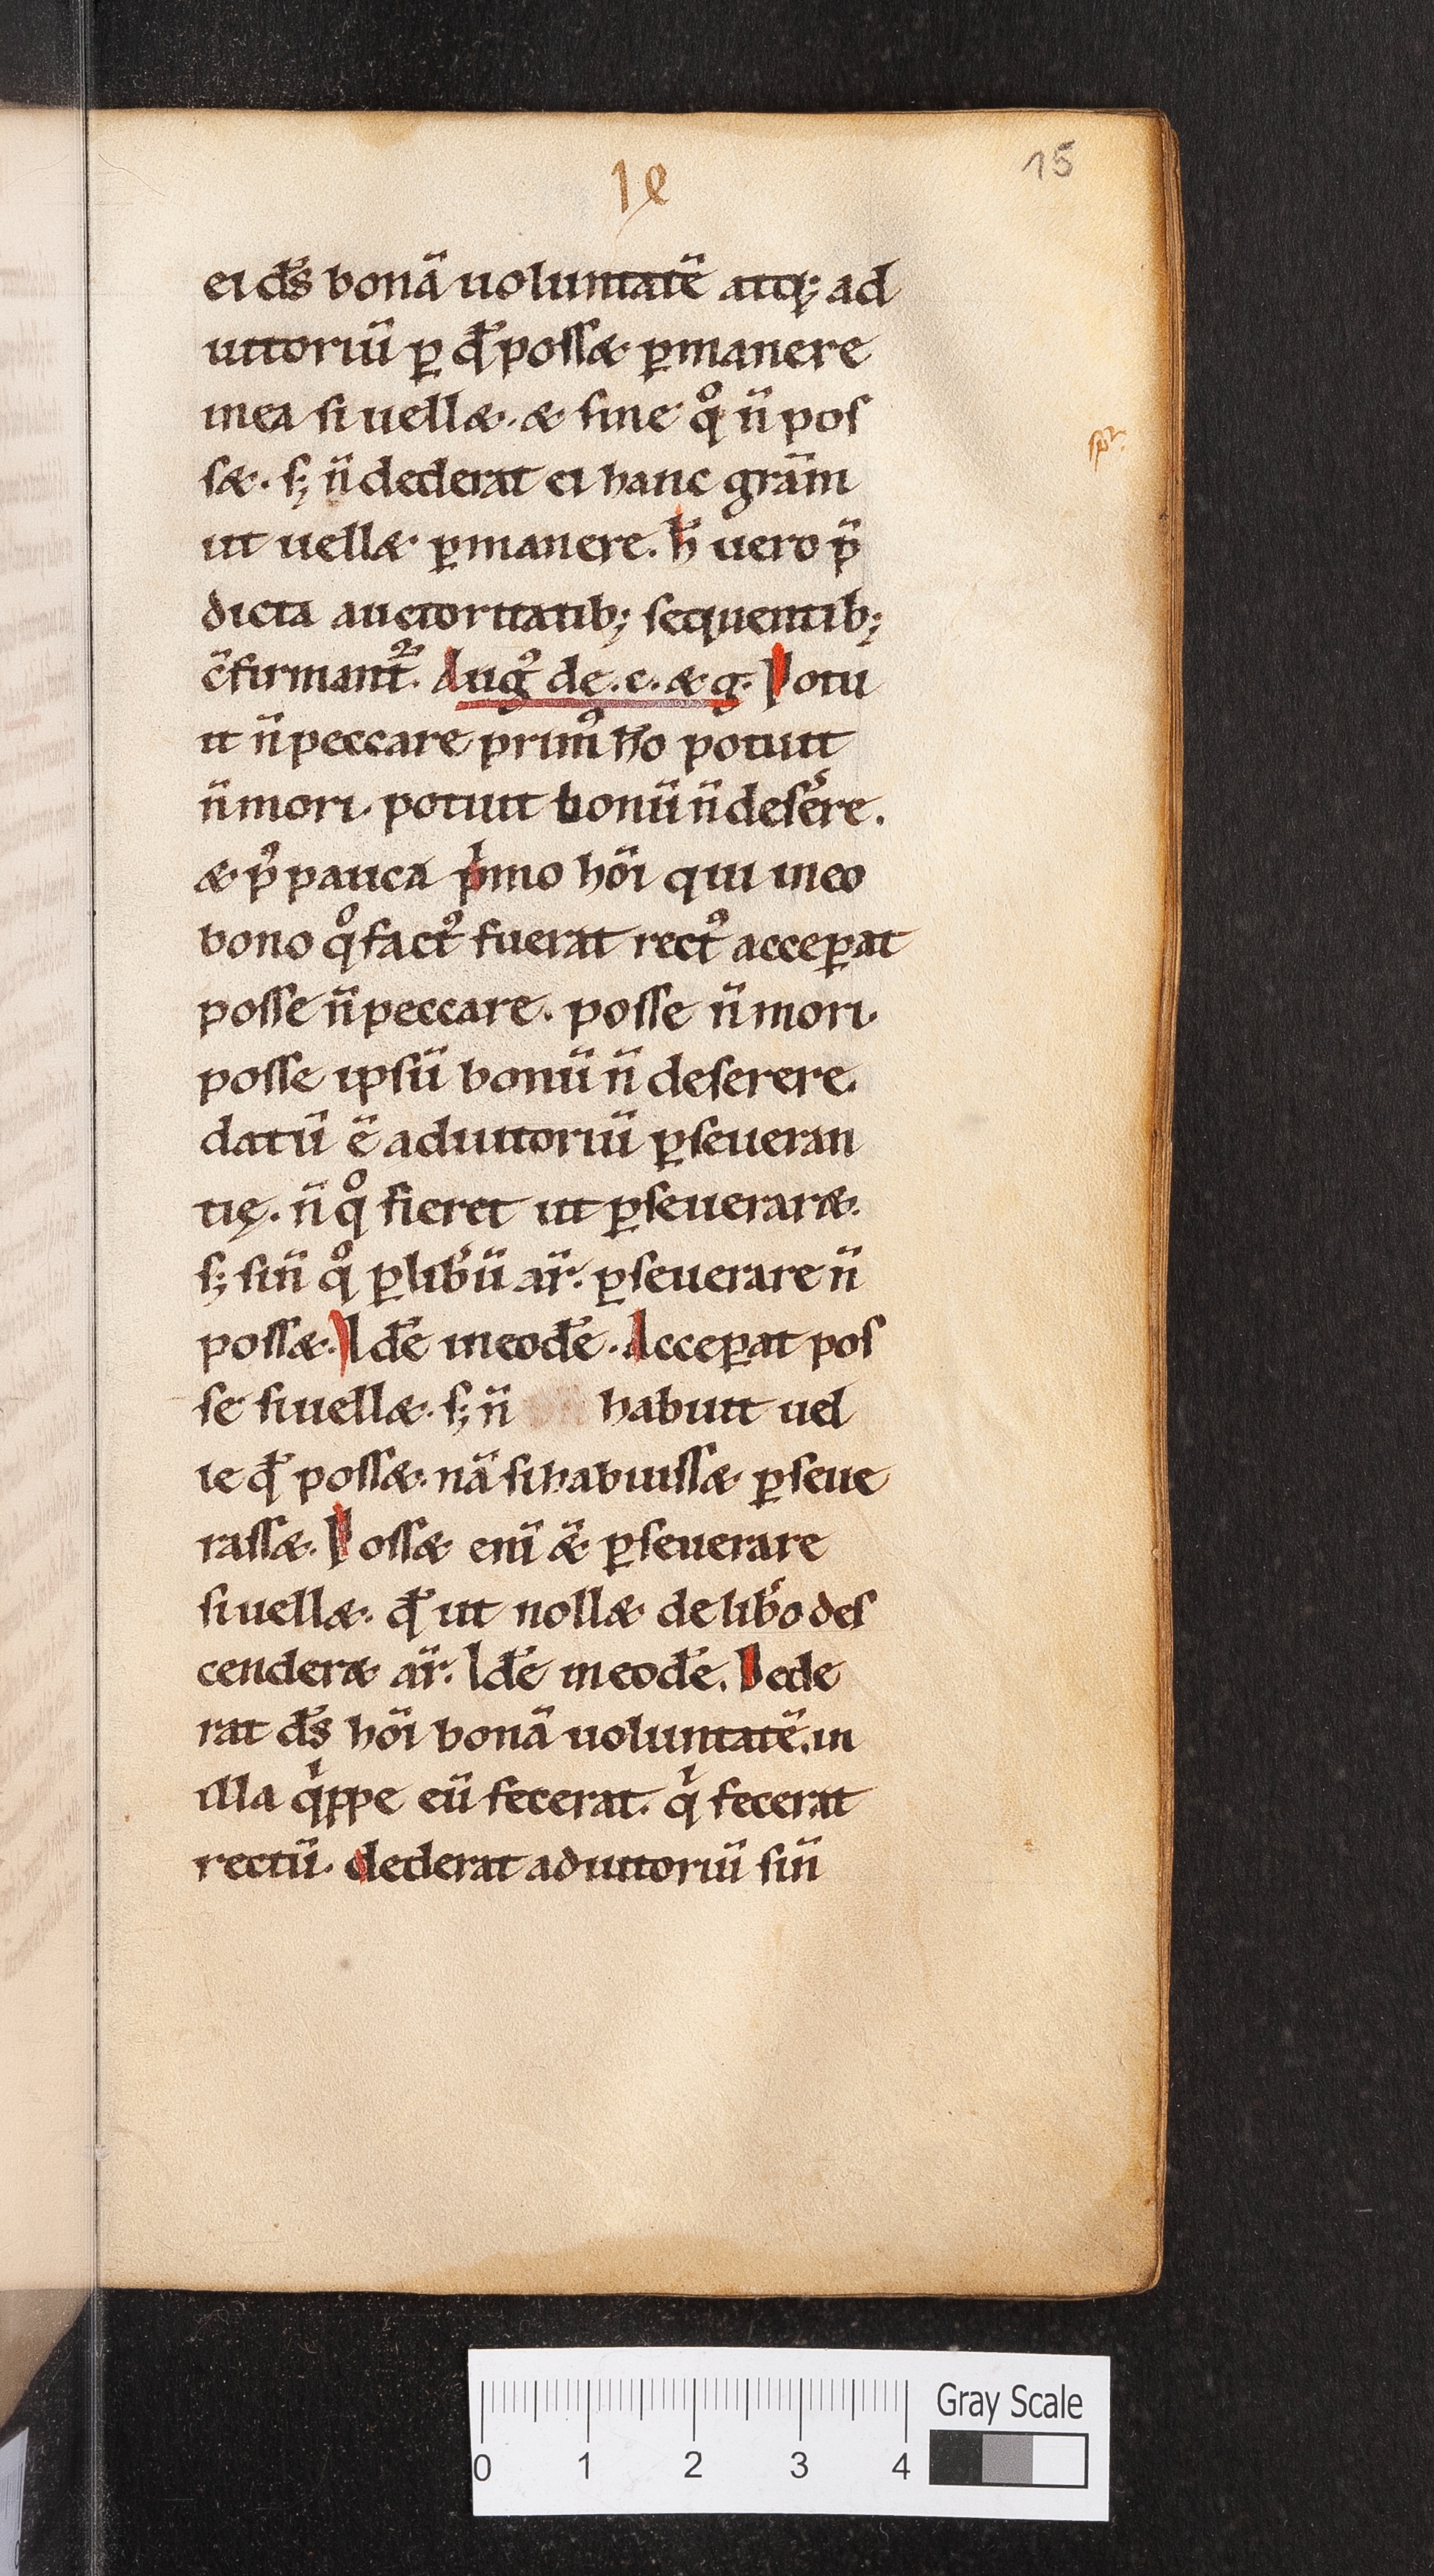 15
15
ei ds̄ bonā uoluntatē atq; ad
iutoriū ꝑ qđ possæ ꝑmanere
in ea si uellæ. æ sine qͦ n̄ pos
sæ. s; n̄ dederat ei hanc grām
ut uellæ ꝑmanere. h̄ uero p̄
dicta auctoritatib; sequentib;
c̄firmant᷑. Augꝰ de .c. æ g. Potu
it n̄ peccare primꝰ ho potuit
n̄ mori. potuit bonū n̄ deser̄e.
æ pꝰ pauca pͥmo hōi qui in eo
bono qͦ factꝰ fuerat rectꝰ acceꝑat
posse n̄ peccare. posse n̄ mori.
posse ipsū bonū n̄ deserere.
datū ē adiutoriū ꝑseueran
tię. n̄ qͦ fieret ut ꝑseueraræ.
s; sin̄ qͦ ꝑ lib̄ū ar̄. ꝑseuerare n̄
possæ. Idē in eodē. Acceꝑat pos
se si uellæ. s; n̄ habuit uel
le qđ possæ. nā si habuissæ ꝑseue
rassæ. Possæ eni̅ æ̅ ꝑseuerare
si uellæ. qđ ut nollæ de lib̄o des
cenderæ ar̄. Idē in eodē. Dede
rat ds̄ hōi bonā uoluntatē. in
illa qͥppe eū fecerat. qͥ fecerat
rectū. dederat adiutoriū sin̄
0 1 2 3 4
Gray Scale